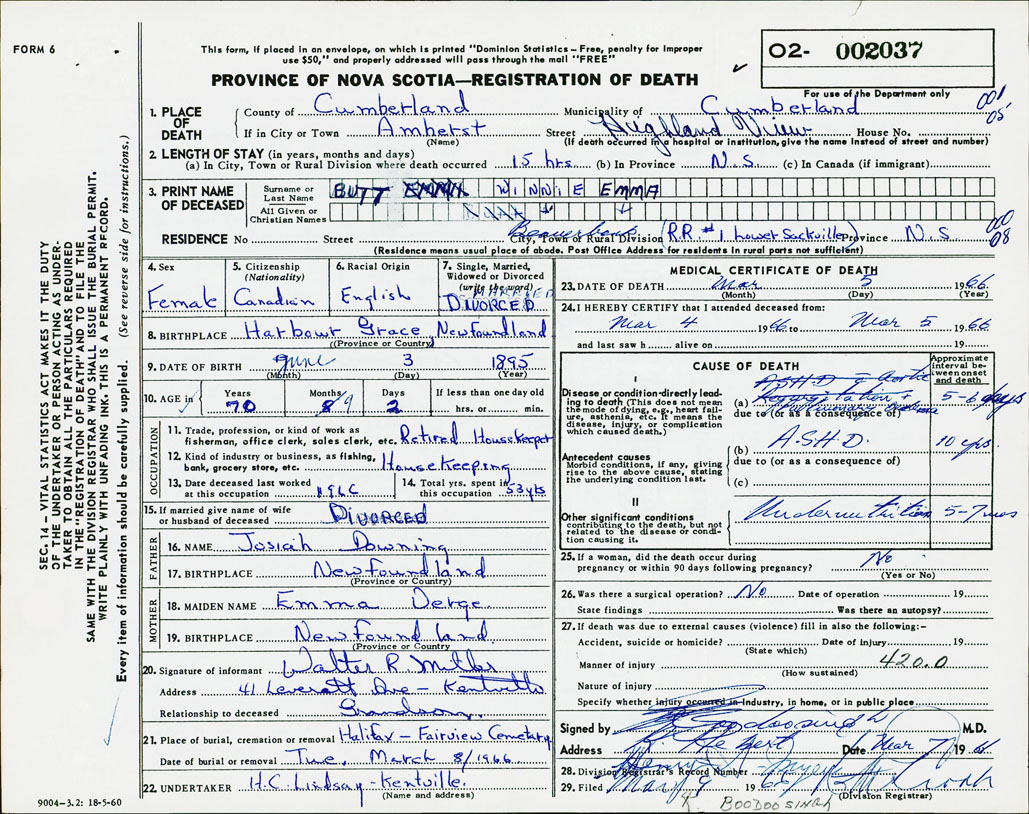 FORM 6
This form, if placed in an envelope, on which is printed "Dominion Statistics – Free, penalty for improper
use $50," and properly addressed will pass through the mail "FREE"
O2- 002037
PROVINCE OF NOVA SCOTIA—REGISTRATION OF DEATH
For use of the Department only
1. PLACE OF DEATH
County of Cumberland Municipality of Cumberland
001
05
If in City or Town Amherst Street Highland View House No.
(Name) (If death occurred in a hospital or institution, give the name instead of street and number)
2. LENGTH OF STAY (in years, months and days)
(a) In City, Town or Rural Division where death occurred 15 hrs (b) In Province N.S. (c) In Canada (if immigrant)
3. PRINT NAME OF DECEASED
Surname or Last Name BUTT EMMA WINNIE EMMA
All Given or Christian Names
Beaverbank
RESIDENCE No Street City, Town or Rural Division (R.R. #1 Lower Sackville) Province N.S
000
08
(Residence means usual place of abode. Post Office Address for residents in rural parts not sufficient)
4. Sex
Female
5. Citizenship
(Nationality)
Canadian
6. Racial Origin
English
7. Single, Married,
Widowed or Divorced
(write the word)
MARRIED
DIVORCED
8. BIRTHPLACE Harbour Grace, Newfoundland
(Province or Country)
9. DATE OF BIRTH June 3 1895
(Month) (Day) (Year)
10. AGE in Years Months Days If less than one day old
70 8 9 2 hrs. or min.
OCCUPATION
11. Trade, profession, or kind of work as
fisherman, office clerk, sales clerk, etc. Retired Housekeeper
12. Kind of industry or business, as fishing,
bank, grocery store, etc. Housekeeping
13. Date deceased last worked
at this occupation 1960
14. Total yrs. spent in
this occupation 53 yrs
15. If married give name of wife
or husband of deceased DIVORCED
FATHER
16. NAME Josiah Downing
17. BIRTHPLACE Newfoundland
(Province or Country)
MOTHER
18. MAIDEN NAME Emma Derge.
19. BIRTHPLACE Newfoundland.
(Province or Country
20. Signature of informant Walter R Miller
Address 41 Leverett Ave – Kentville
Relationship to deceased Grandson.
21. Place of burial, cremation or removal Halifax – Fairview Cemetary
Date of burial or removal Tue. March 8/1966
22. UNDERTAKER H.C. Lindsay – Kentville.
(Name and address)
MEDICAL CERTIFICATE OF DEATH
23. DATE OF DEATH Mar 5 1966
(Month) (Day) (Year)
24. I HEREBY CERTIFY that I attended deceased from:
Mar 4 1966 to Mar 5 1966
and last saw h alive on 19
CAUSE OF DEATH
Approximate interval between onset and death
I
Disease or condition directly leading to death (This does not mean
the mode of dying, e.g., heart failure, asthenia, etc. It means the
disease, injury, or complication
which caused death.)
(a) ASHD c Aortic
Regurgitation + 5-6 days
due to (or as a consequence of)
(b) A.S.H.D. 10 yrs.
Antecedent causes
Morbid conditions, if any, giving
rise to the above cause, stating
the underlying condition last.
due to (or as a consequence of)
(c)
II
Other significant conditions
contributing to the death, but not
related to the disease or condition causing it.
Undernutrition 5-7 mos
25. If a woman, did the death occur during
pregnancy or within 90 days following pregnancy? No.
(Yes or No)
26. Was there a surgical operation? No Date of operation 19
State findings Was there an autopsy?
27. If death was due to external causes (violence) fill in also the following:-
Accident, suicide or homicide? Date of injury 19
(State which)
Manner of injury 420.0
(How sustained)
Nature of injury
Specify whether injury occurred in industry, in home, or in public place
Signed by Boodoosingh M.D.
Address Date Mar 7 1966
28. Division Registrar's Record Number
29. Filed Mar 9 1966
(Division Registrar)
BOODOOSINGH
9004-3.2: 18-5-60
SEC. 14 – VITAL STATISTICS ACT MAKES IT THE DUTY
OF THE UNDERTAKER OR PERSON ACTING AS UNDERTAKER TO OBTAIN ALL THE PARTICULARS REQUIRED
IN THE "REGISTRATION OF DEATH" AND TO FILE THE
SAME WITH THE DIVISION REGISTRAR WHO SHALL ISSUE THE BURIAL PERMIT.
WRITE PLAINLY WITH UNFADING INK. THIS IS A PERMANENT RECORD.
Every item of information should be carefully supplied. (See reverse side for instructions.)